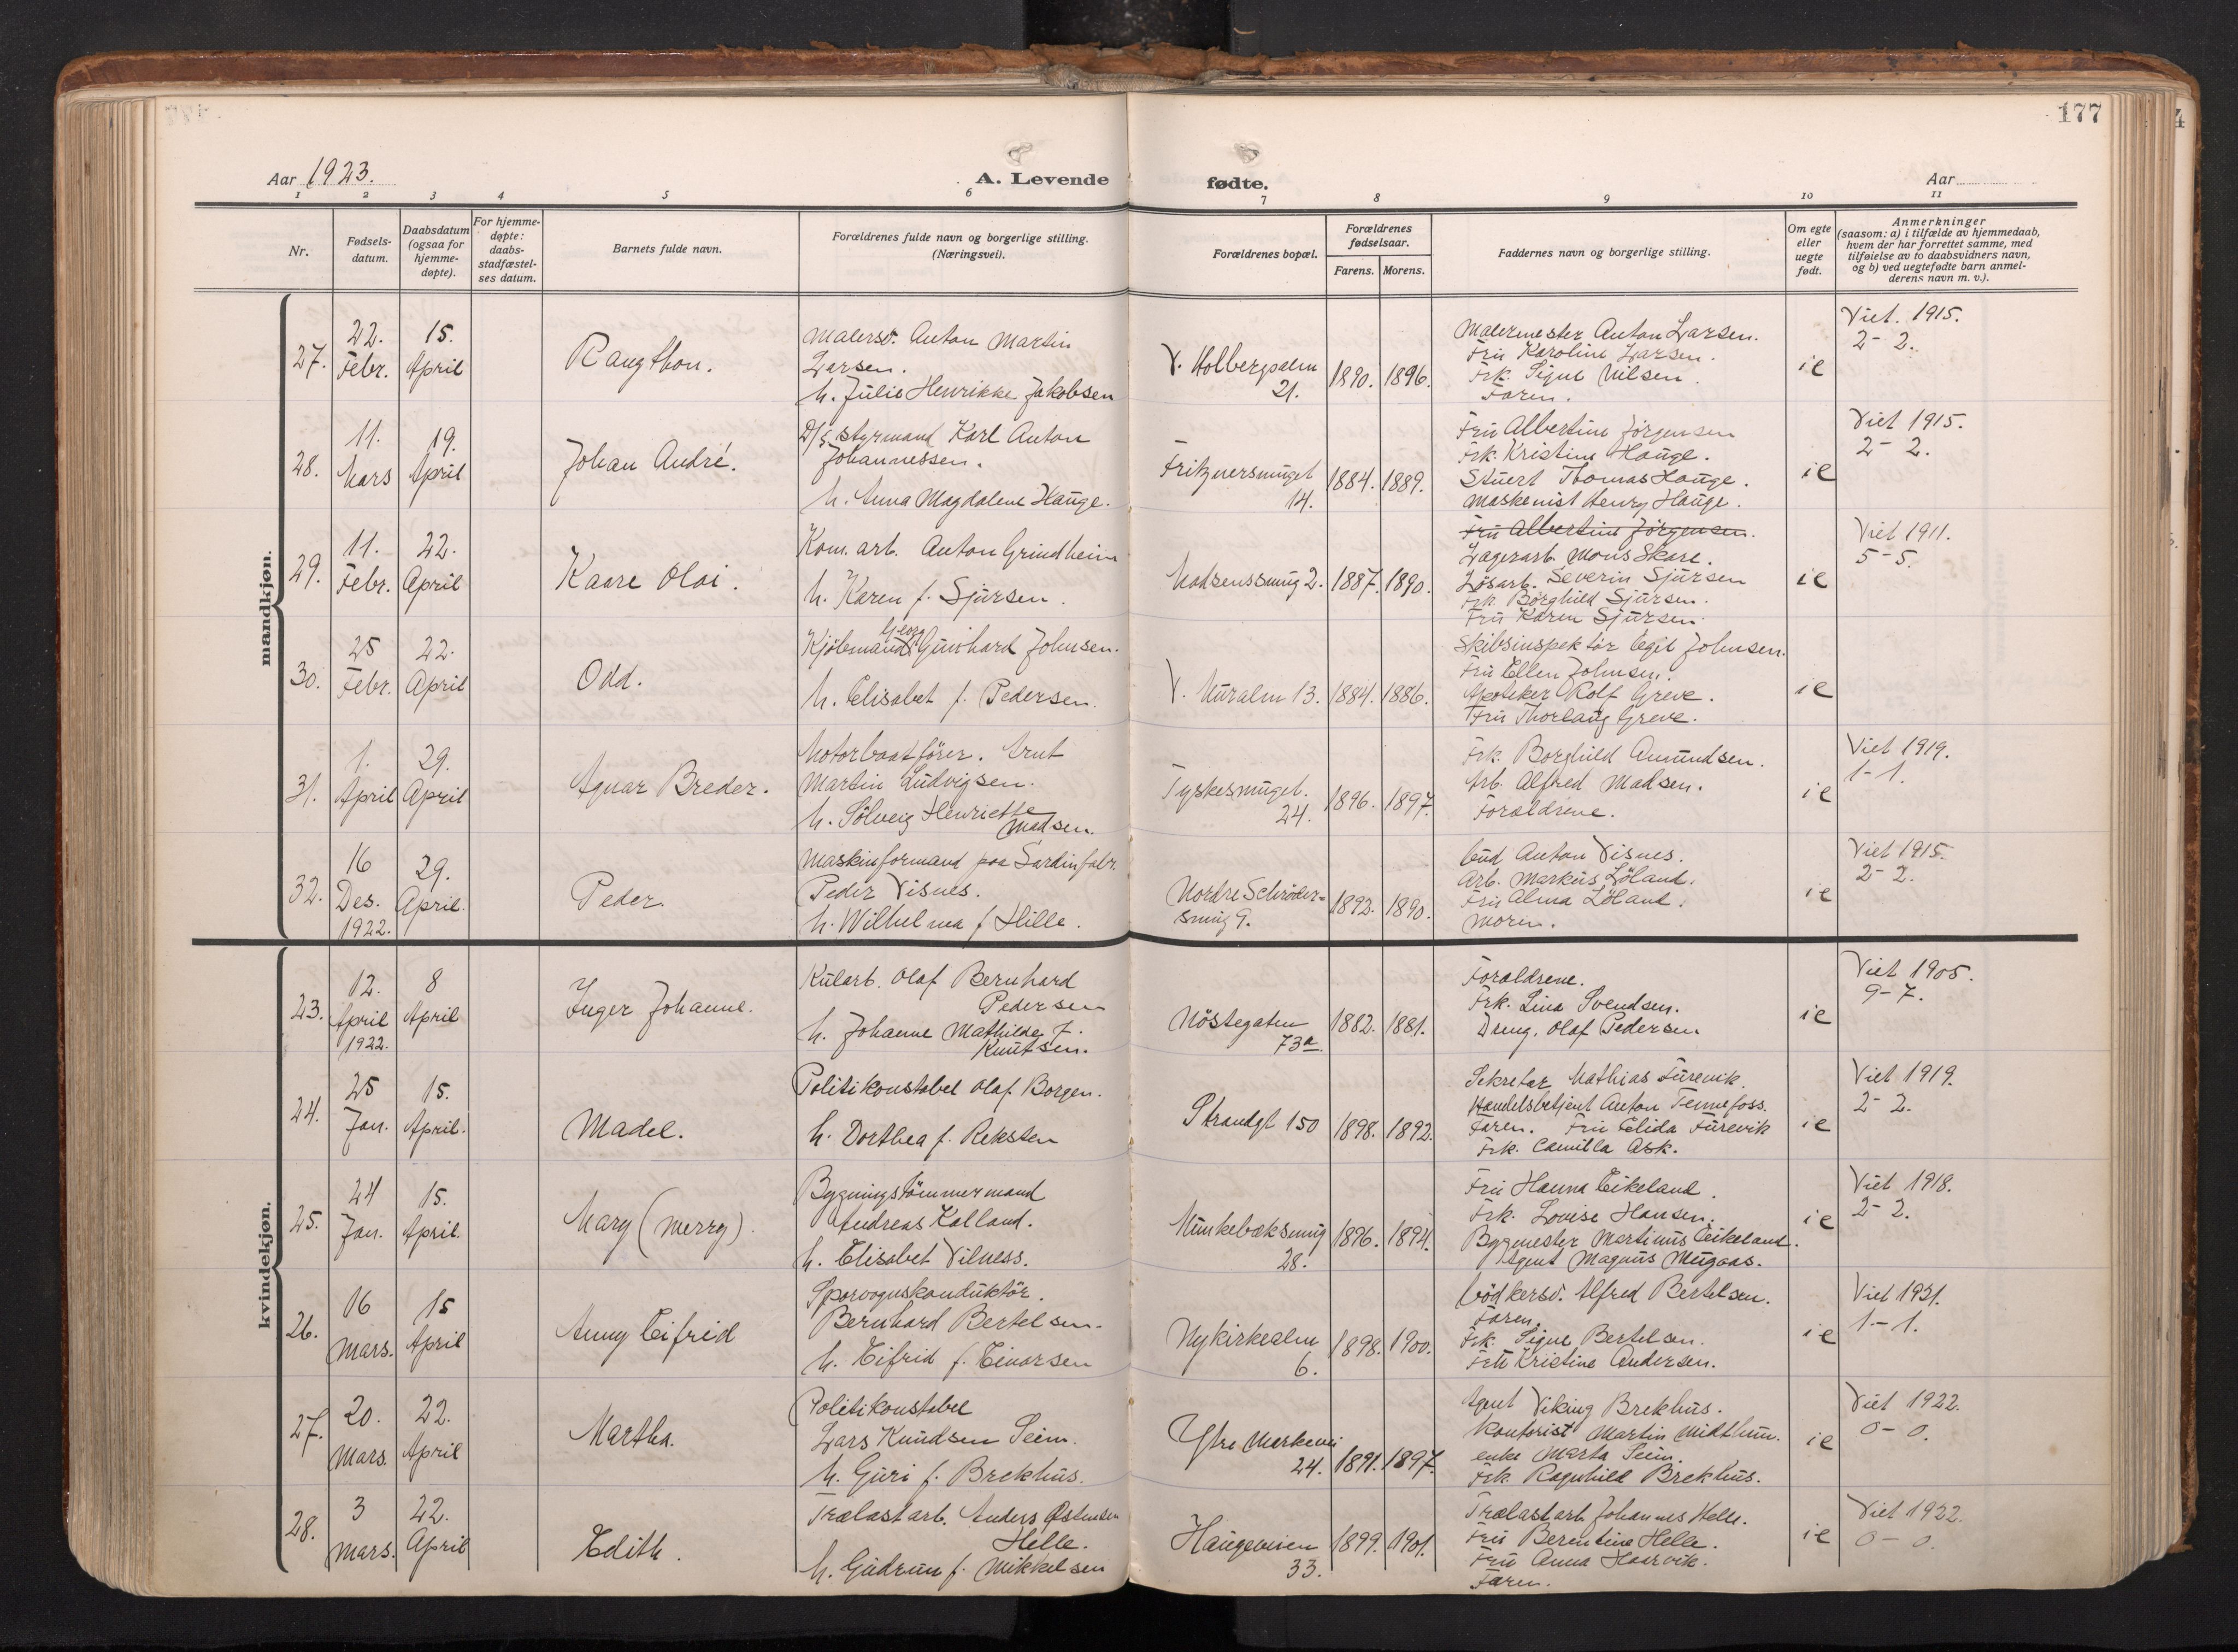 177
Aar 1923.
A. Levende fødte.
Aar
1 2 3 4 5 6 7 8 9 10 11
Nr.
Fødsels-datum.
Daabsdatum (ogsaa for hjemme-døpte).
For hjemme-døpte: daabs-stadfæstel-ses datum.
Barnets fulde navn.
Forældrenes fulde navn og borgerlige stilling. (Næringsvei).
Forældrenes bopæl.
Forældrenes fødselsaar.
Farens. Morens.
Faddernes navn og borgerlige stilling.
Om egte eller uegte født.
Anmerkninger
(saasom: a) i tilfælde av hjemmedaab,
hvem der har forrettet samme, med
tilføielse av to daabsvidners navn,
og b) ved uegtefødte barn anmel-
derens navn m. v.).
mandkjøn.
27.
22. Febr.
15. April
Raugthon.
Malersv. Anton Martin
Larsen.
h. Julie Henrikke Jakobsen
V. Holbergsalm
21.
1890. 1896.
Malermester Anton Larsen.
Fru Karoline Larsen.
Frk. Signe Nilsen.
Faren.
ie
Viet. 1915.
2-2.
28.
11. Mars
19. April
Johan André.
D/s styrmand Karl Anton
Johannessen.
h. Anna Magdalene Hauge.
Fritznersmuget
14.
1884. 1889.
Fru Albertine Jörgensen
Frk. Kristine Hauge.
Stuert Thomas Hauge.
Maskinist Henry Hauge.
ie
Viet 1915.
2-2.
29.
11. Febr.
22. April
Kaare Olai.
Kom. arb. Anton Grindheim
h. Karen f. Sjursen.
Madsenssmug 2.
1887. 1890.
Fru Albertine Jörgensen.
Lagerarb. Mons Skare.
Løsarb. Severin Sjursen
Frk. Borghild Sjursen.
Fru Karen Sjursen.
ie
Viet 1911.
5-5.
30.
25 Febr.
22. April
Odd.
Kjöbmand Georg Gunhard Johnsen.
h. Elisabet f. Pedersen.
V. Muralm 13.
1884. 1886.
Skibsinspektör Egil Johnsen.
Fru Ellen Johnsen.
Apoteker Rolf Greve.
Fru Thorlaug Greve.
ie
31.
1. April
29. April
Agnar Breder.
Motorbaatförer. Arnt
Martin Ludvigsen.
h. Sölveig Henriette
Madsen.
Tyskesmuget.
24.
1896. 1897.
Frk. Borghild Amundsen.
Arb. Alfred Madsen.
Forældrene.
ie
Viet 1919.
1-1.
32.
16 Des. 1922.
29. April.
Peder.
Maskinformand paa Sardinfabr.
Peder Visnes.
h. Wilhelma f. Hille.
Nordre Schröder-
smug 9.
1892. 1890.
Bud Anton Visnes.
Arb. Markus Löland.
Fru Alma Löland.
Moren.
ie
Viet 1915.
2-2.
kvindekjøn.
23.
12. April 1922.
8 April
Inger Johanne.
Kularb. Olaf Bernhard
Pedersen
h. Johanne Mathilde f.
Knutsen.
Nöstegaten
73a.
1882. 1881.
Forældrene.
Frk. Lina Svendsen.
Dreng. Olaf Pedersen
ie
Viet 1905.
9-7.
24.
25 Jan.
15. April.
Madel.
Politikonstabel Olaf Borgen.
h. Dorthea f. Reksten
Strandgt 150
1898. 1892.
Sekretær Mathias Furevik.
Handelsbetjent Anton Tennefoss.
Faren. Fru Elida Furevik
Frk. Camilla Ask.
ie
Viet 1919.
2-2.
25.
24 Jan.
15. April.
Mary (Merry).
Bygningstömmermand
Andreas Kalland.
h. Elisabet Vilness.
Munkebæksmug
28.
1896. 1894.
Fru Hanna Eikeland.
Frk. Lovise Hansen.
Bygmester Martinus Eikeland.
Agent Magnus Mugaas.
ie
Viet 1918.
2-2.
26.
16 Mars.
15 April
Anny Eifrid
Sporvognskonduktör.
Bernhard Bertelsen.
h. Eifrid f. Einarsen
Nykirkealm
6.
1898. 1900.
Bödkersv. Alfred Bertelsen.
Faren.
Frk. Signe Bertelsen.
Frk Kristine Andersen.
ie
Viet 1921.
1-1.
27.
20. Mars.
22. April
Martha.
Politikonstabel
Lars Knudsen Seim.
h. Guri f. Brekhus.
Ytre Markevei
24.
1891. 1897.
Agent Viking Brekhus.
Kontorist Martin Midthun.
enke Marta Seim.
Frk. Ragnhild Brekhus.
ie
Viet 1922.
0-0.
28.
3 Mars.
22. April
Edith.
Trælastarb. Anders Østensen
Helle.
h. Gudrun f. Mikkelsen
Haugeveien
33.
1899. 1901.
Trælastarb. Johannes Helle.
Fru Berentine Helle.
Fru Anna Haarvik.
Faren.
ie
Viet 1922.
0-0.